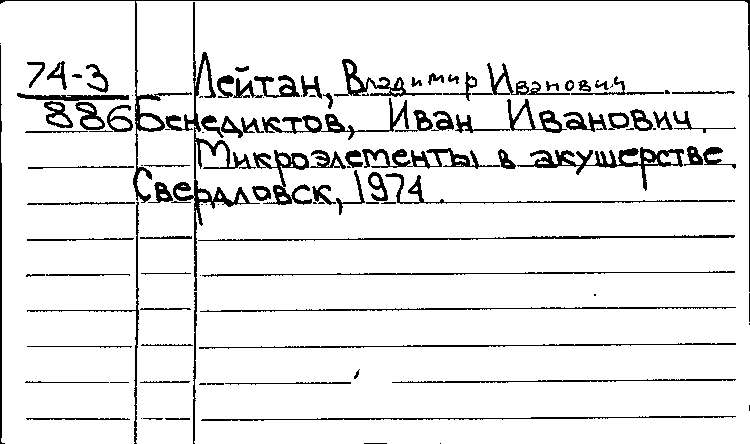 74-3 Лейтан, Владимир Иванович
886 Бенедиктов, Иван Иванович.
Микроэлементы в акушерстве.
Свердловск, 1974.